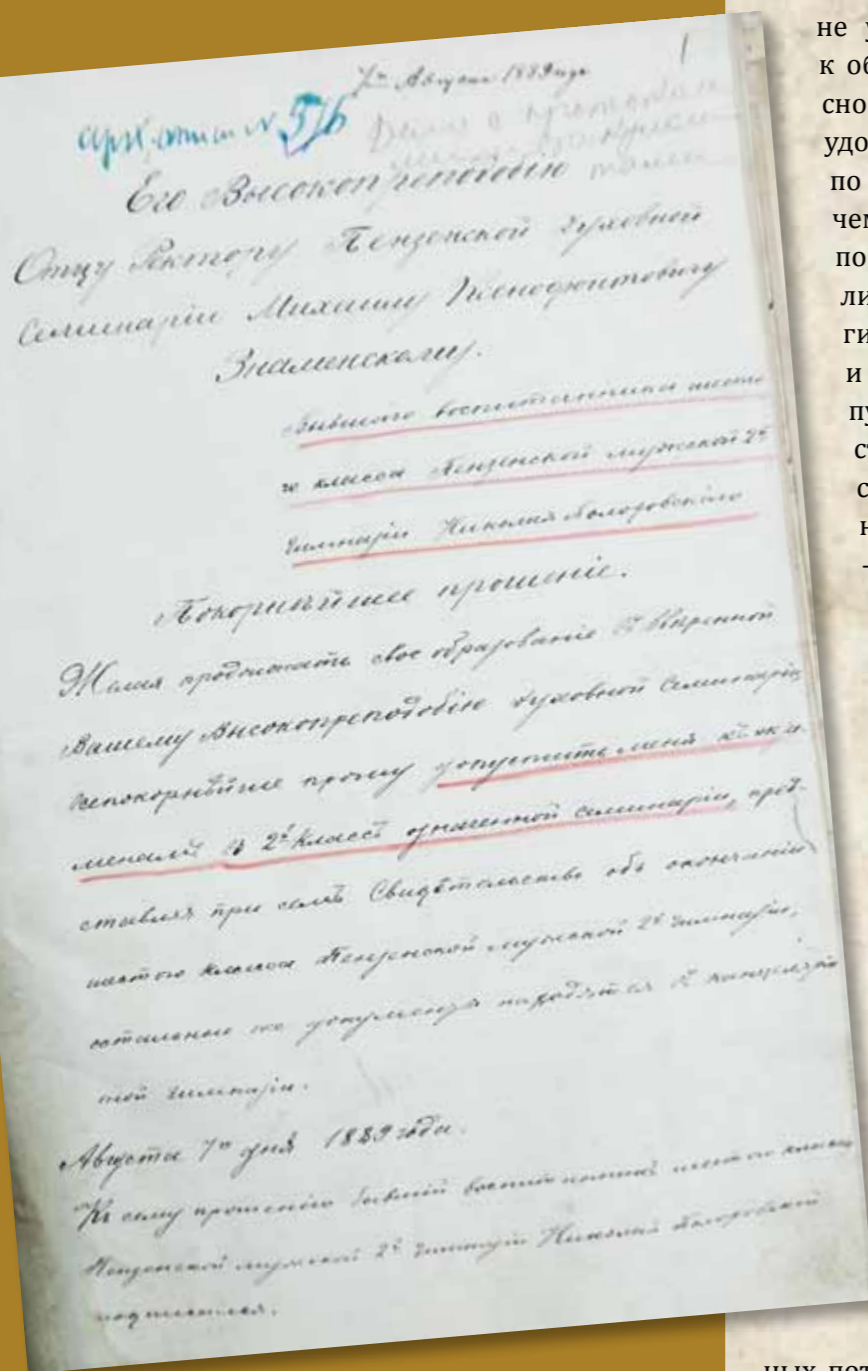 1
7го Августа 1889 года
арх. опись № 576
Дело о
Его Высокопреподобію
Отцу Ректору Пензенской Духовной
Семинаріи Михаилу Ксенофонтовичу
Знаменскому.
бывшаго воспитанника шесто-
го класса Пензенской мужской 2й
Гимназіи Николая
Покорнѣйшее прошеніе.
Желая продолжать свое образованіе въ Ввѣренной
Вашему Высокопреподобію духовной Семинаріи
всепокорнѣйше прошу допустить меня къ экза-
менамъ въ 2й классъ означенной семинаріи, пред-
ставляя при семъ Свидѣтельство объ окончаніи
шестого класса Пензенской мужской 2й гимназіи,
остальные же документы находятся въ канцеляріи
той гимназіи.
Августа 7го дня 1889 года.
Къ сему прошенію бывшій воспитанникъ шестого класса
Пензенской мужской 2й гимназіи Николай
подписался.
не у
к об
сно
удо
по
чем
по
ли
ги
и
пу
ст
с
н
-
ных пот